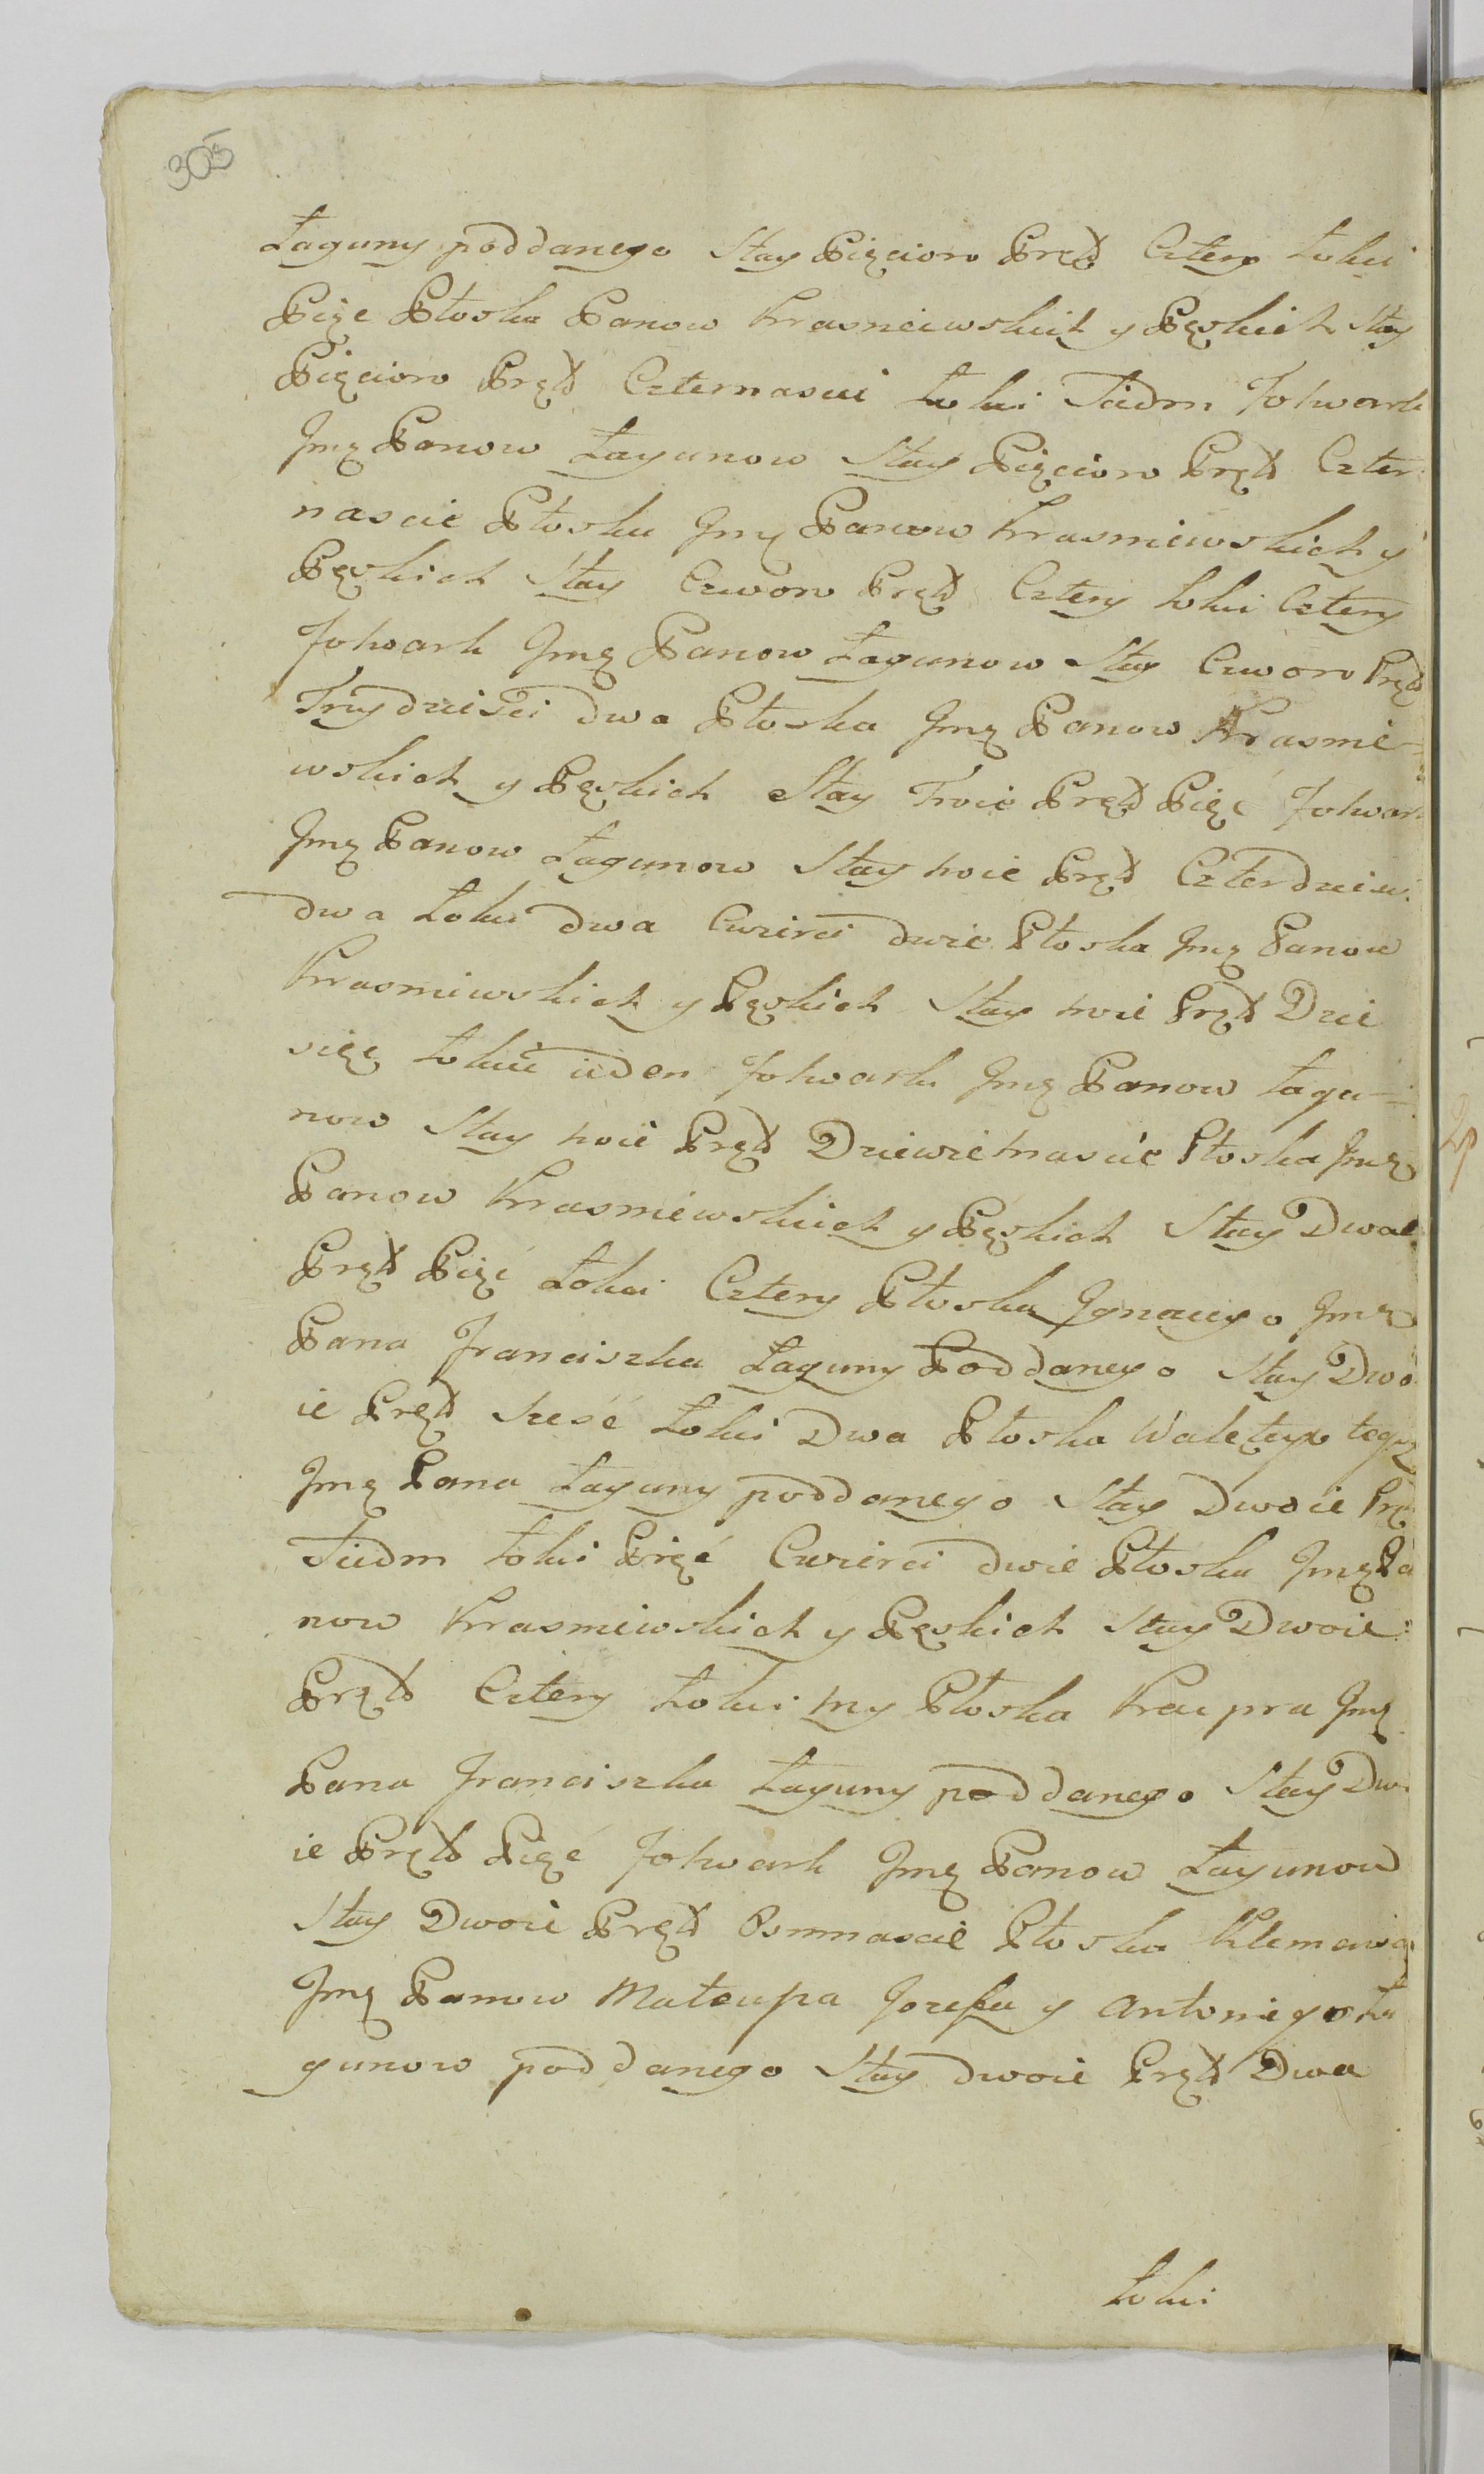 305
Łaguny poddanego Stay Pięcioro Pręt: Cztery Łokci
Pięc Płoska Panow Krasniewskich y Pęskich Stay
Pięcioro Pręt: Czternascie Łokci Siedm Folwark
Jmę Panow Łagunow Stay Pięcioro Pręt: Czter
nascie Płoska Jmę Panow Krasniewskich y
Pęskich Stay Czworo Pręt: Cztery Łokci Cztery
Folwark Jmę Panow Łagunow Stay Czworo Pręt
Trzydziesci dwa Płoska Jmę Panow Krasnie-
wskich y Pęskich Stay Troie Pręt: Pięć Folwark
Jmę Panow Łagunow Stay troie Pręt: Czterdziesci
dwa Łokci dwa Cwierci dwie Płoska Jmę Panow
Krasniewskich y Pęskich Stay troie Pręt: Dzie
sięc Łokiec ieden Folwark Jmę Panow Łagu-
now Stay troie Pręt: Dziewietnascie Płoska Jmę
Panow Krasniewskich y Pęskich Stay Dwoie
Pręt: Pięć Łokci Cztery Płoska Ignacego Jmę
Pana Franciszka Łaguny Poddanego Stay Dwo
ie Pręt: Szesć Łokci Dwa Płoska Walętego tegoż
Jmę Pana Łaguny poddanego Stay Dwoie Prę
Siedm Łokci Pięć Cwierci dwie Płoska Jmę Pa
now Krasniewskich y Pęskich Stay Dwoie
Pręt: Cztery Łokci trzy Płoska Kacpra Jmę
Pana Franciszka Łaguny poddanego Stay Dwo
ie Pręt: Pięć Folwark Jmę Panow Łagunow
Stay Dwoie Pręt: Osmnascie Płoska Klemensa
Jmę Panow Mateusza Jozefa y Antoniego Ła
gunow poddanego Stay dwoie Pręt: Dwa
Łokci